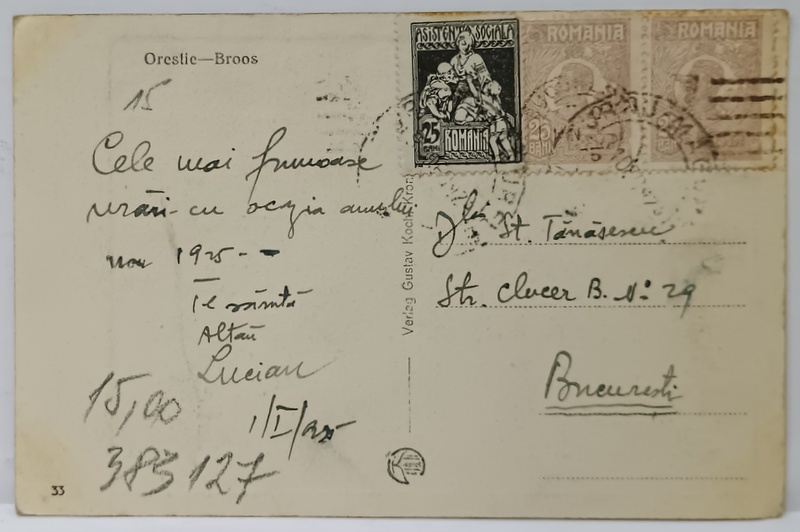 Orestie—Broos
15
Cele mai frumoase
urări cu ocazia anului
nou 1925
Altău
Lucian
1/I/925
15,00
383127
33
ASISTENȚA SOCIALA
25
BANI
ROMANIA
ROMANIA
25
BANI
ROMANIA
Verlag Gustav Koch, Kron
Dlui St. Tănăsescu
Str. Clucer B. No 29
Bucuresti